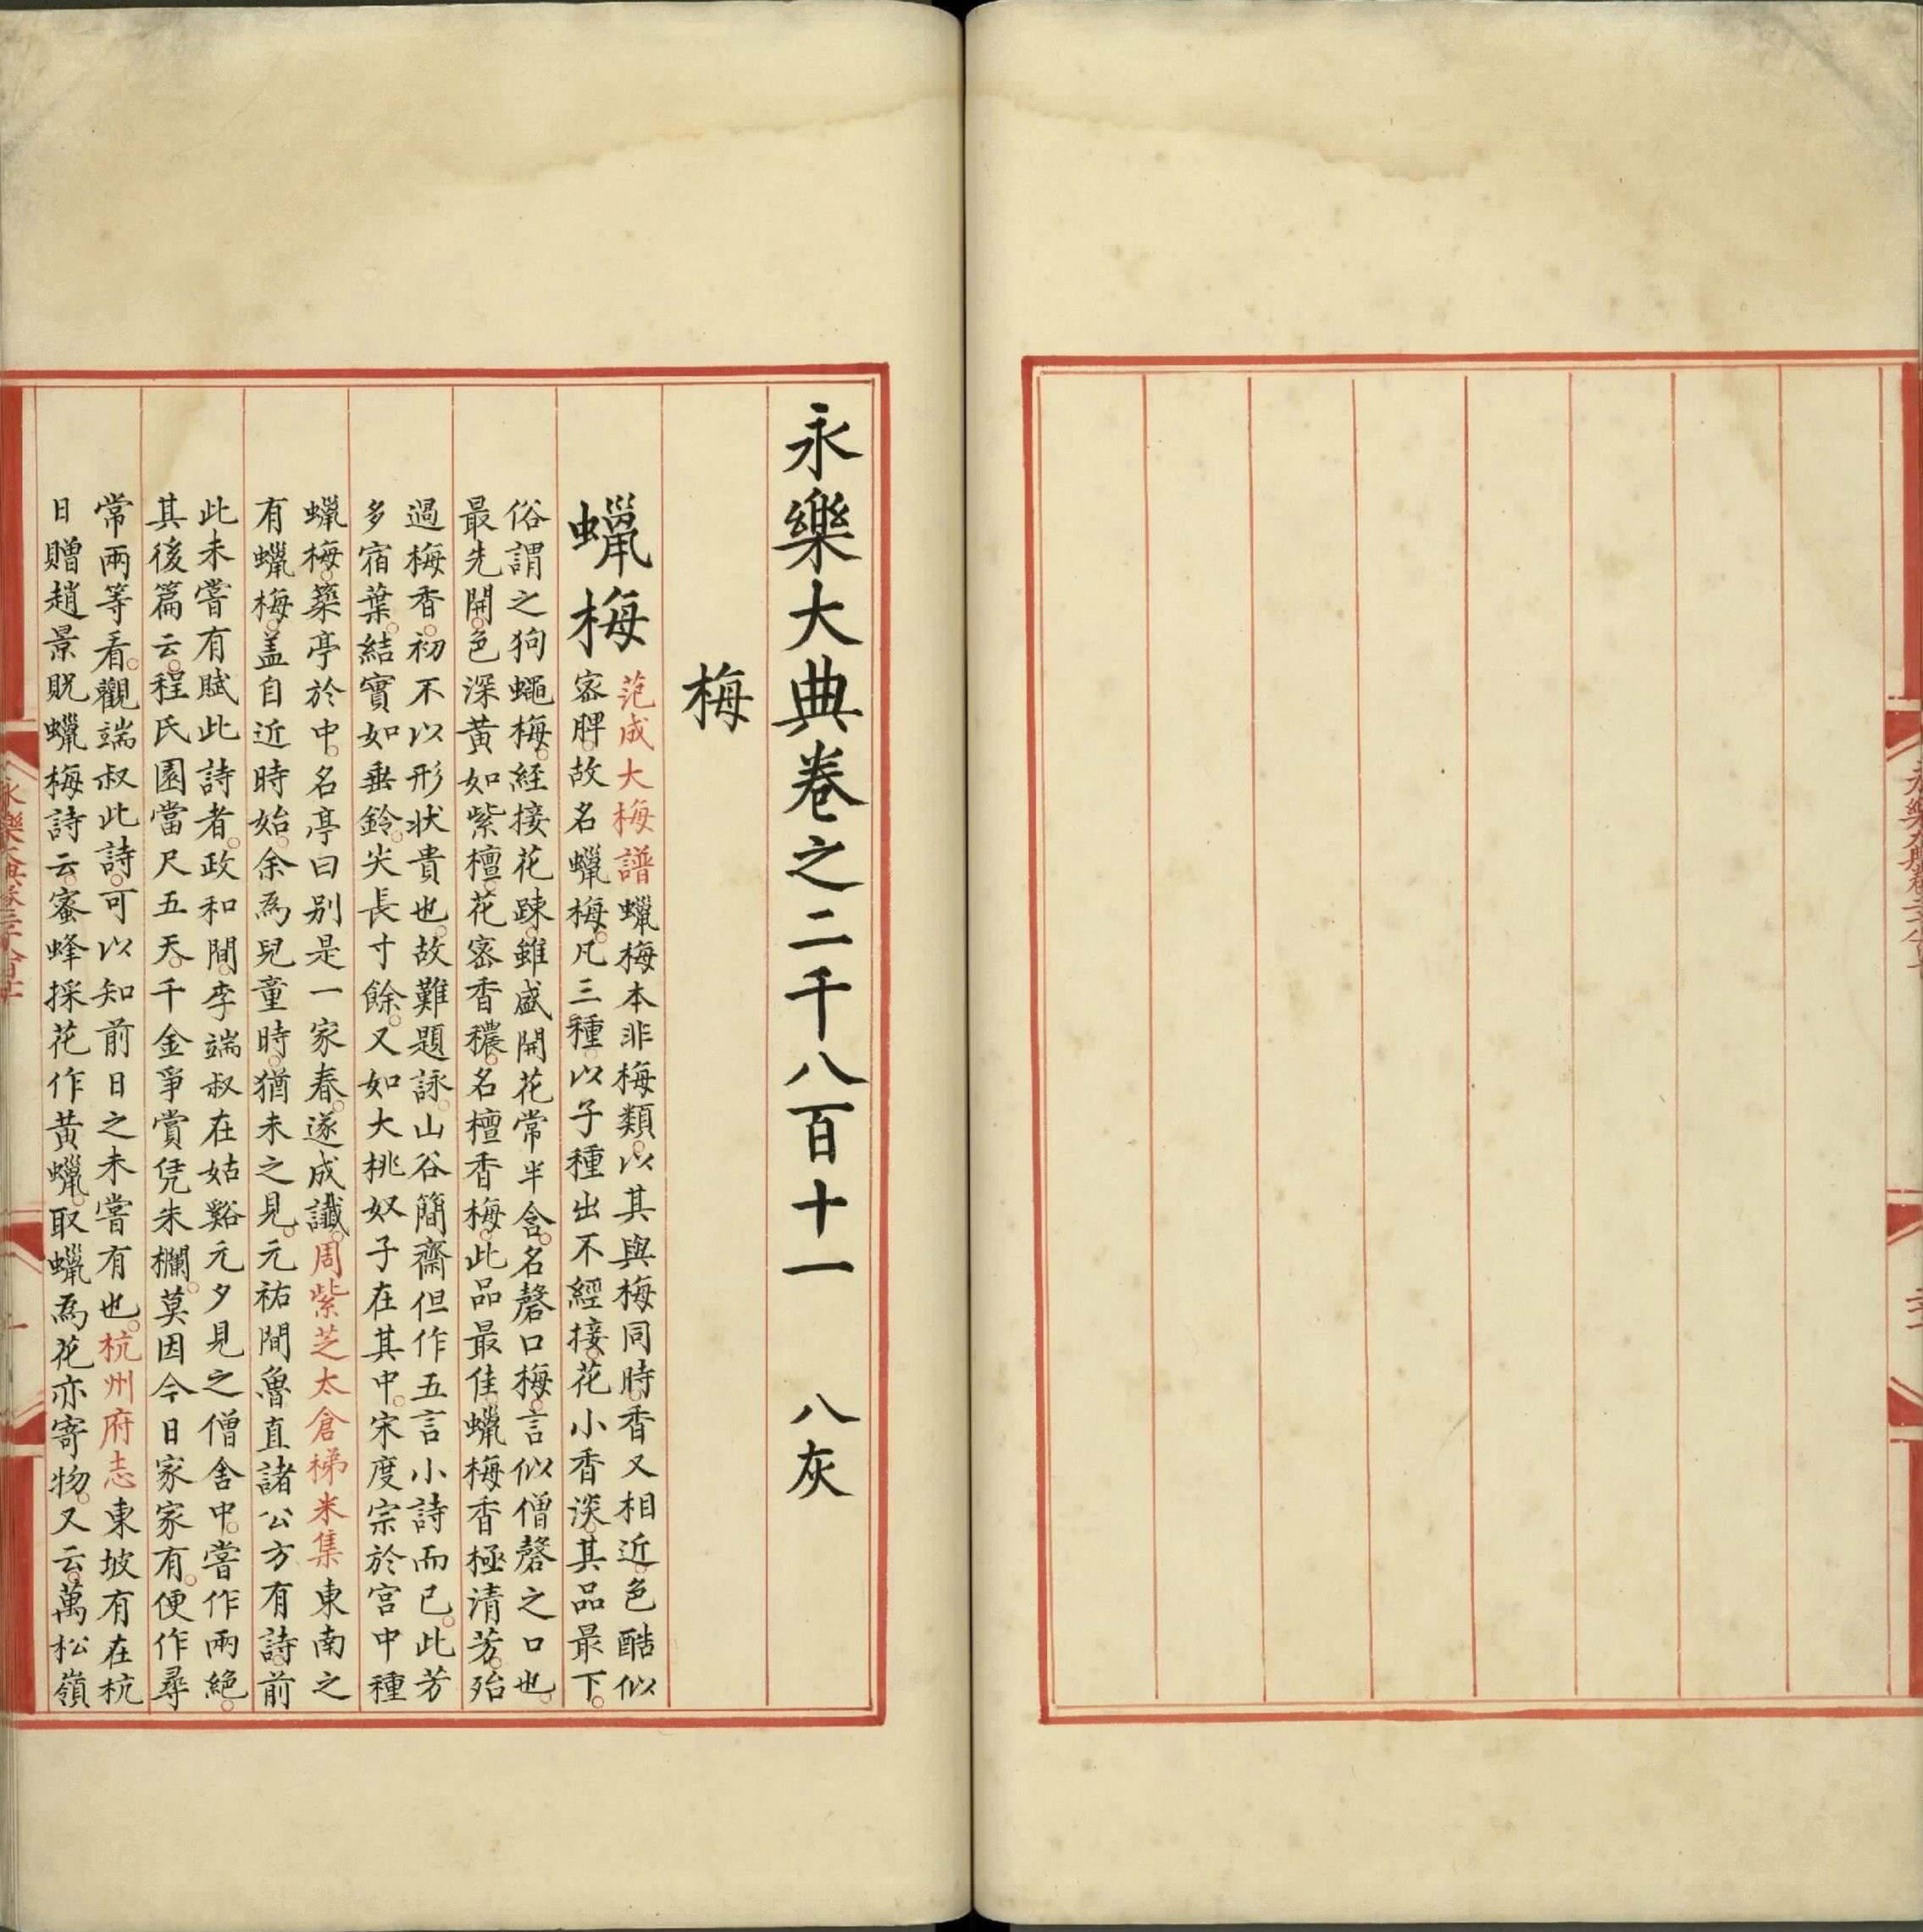 永樂大典卷之二千八百十一　八灰
梅
蠟梅
范成大梅譜蠟梅本非梅類。以其與梅同時。香又相近。色酷似
宻脾。故名蠟梅。凡三種。以子種出不經接。花小香淡。其品最下。
俗謂之狗蠅梅。経接花踈。雖盛開花常半含。名磬口梅。言似僧磬之口也。
最先開。色深黃如紫檀。花宻香穠。名檀香梅。此品最佳。蠟梅香極清芳。殆
過梅香。初不以形状貴也。故難題詠。山谷簡齋但作五言小詩而已。此芳
多宿葉。結實如垂鈴。尖長寸餘。又如大桃奴子在其中。宋度宗於宫中種
蠟梅。築亭於中。名亭曰别是一家春。遂成讖。周紫芝太倉稊米集東南之
有蠟梅。盖自近時始。余為兒童時。猶未之見。元祐間魯直諸公方有詩。前
此未嘗有賦此詩者。政和間。李端叔在姑谿元夕見之僧舍中。嘗作兩絕。
其後篇云。程氏園當尺五天。千金爭賞凭朱欄。莫因今日家家有。便作尋
常兩等看。觀端叔此詩。可以知前日之未嘗有也。杭州府志東坡有在杭
日贈趙景貺蠟梅詩云。蜜蜂採花作黃蠟。取蠟為花亦寄物。又云。萬松嶺